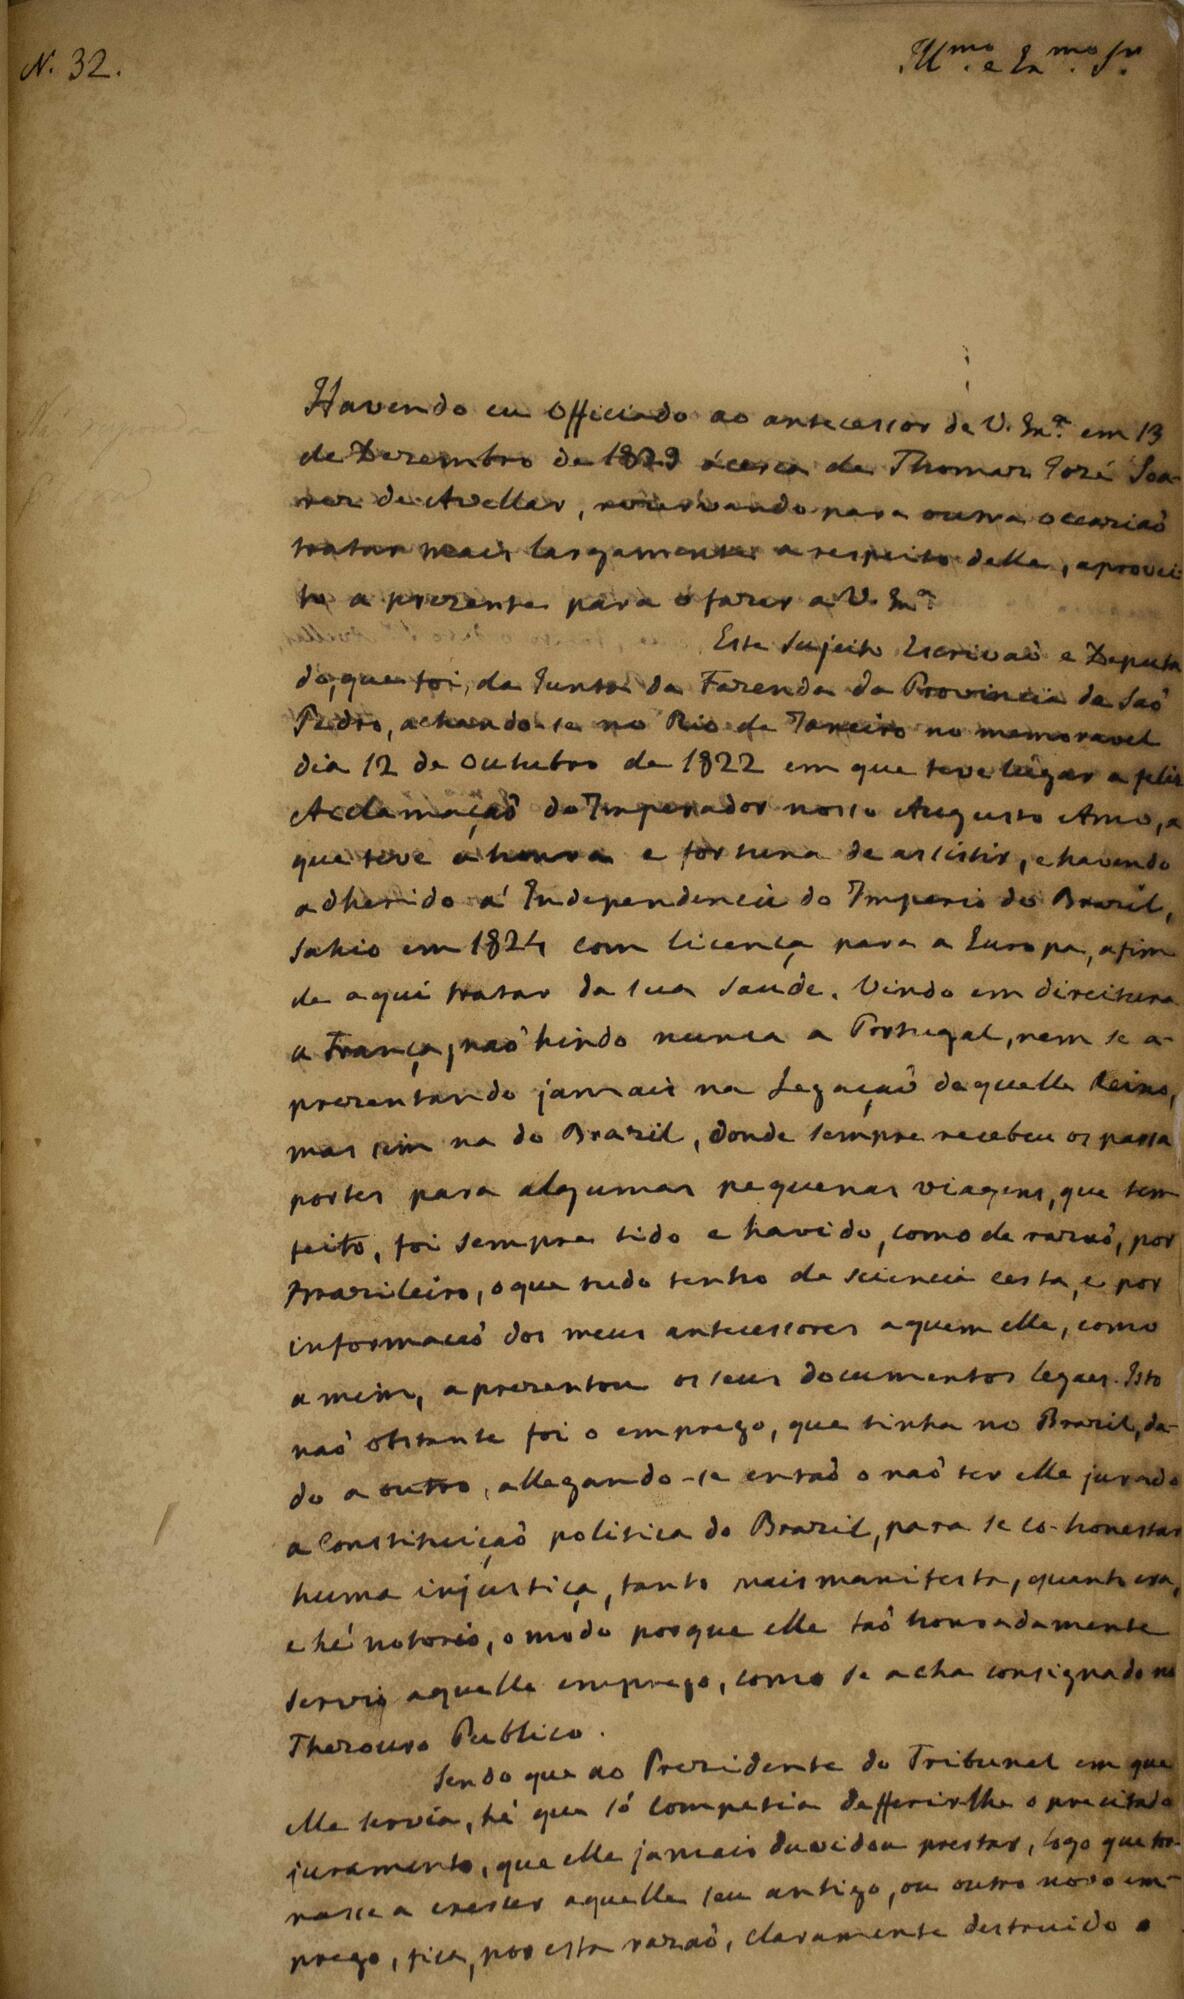 N. 32.
Ill.mo e Ex.mo Sr.
Havendo eu Officiado ao antecessor de V. Ex.ª em 13
de Dezembro de 1829 ácerca de Thomaz José Soa-
rez de Avellar, rezervando para outra occaziaõ
tratar mais largamente a respeito delle, aprovei-
to a prezente para o fazer a V. Ex.ª
Este Sujeito Escrivaõ e Deputa
do, que foi, da Junta da Fazenda da Provincia de Saõ
Pedro, achando-se no Rio de Janeiro no memoravel
dia 12 de Outubro de 1822 em que teve lugar a feliz
Acclamaçaõ do Imperador nosso Augusto Amo, a
que teve a honra e fortuna de assistir, e havendo
adherido á Independencia do Imperio do Brazil,
sahio em 1824 com licença para a Europa, afim
de aqui tratar da sua saude. Vindo em direitura
a França, naõ hindo nunca a Portugal, nem se a-
prezentando jamais na Legaçaõ daquelle Reino,
mas sim na do Brazil, donde sempre recebeu os passa
portes para algumas pequenas viagens, que tem
feito, foi sempre tido e havido, como de razaõ, por
Brazileiro, o que tudo tenho de sciencia certa, e por
informaçaõ dos meus antecessores a quem elle, como
a mim, aprezentou os seus documentos legaes. Isto
naõ obstante foi o emprego, que tinha no Brazil, da-
do a outro, allegando-se entaõ o naõ ter elle jurado
a Constituiçaõ politica do Brazil, para se co-honestar
huma injustiça, tanto mais manifesta, quanto era,
e hé notorio, o modo porque elle taõ honradamente
servio aquelle emprego, como se acha consignado no
Thezouro Publico.
Sendo que ao Prezidente do Tribunal em que
elle servia, hé que só competia defferir-lhe o precitado
juramento, que elle jamais duvidou prestar, logo que tor-
nasse a exercer aquelle seu antigo, ou outro novo em-
prego, fica, por esta razaõ, claramente destruido o